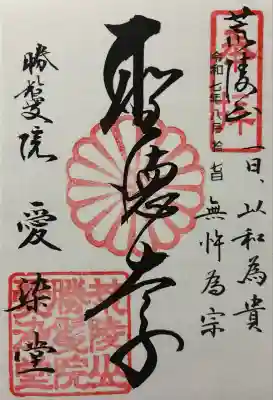 荒陵山
令和七年八月拾七日
一曰、以和為貴
無忤為宗
聖徳太子
勝鬘院 愛染堂
荒陵山
勝鬘院
愛染堂